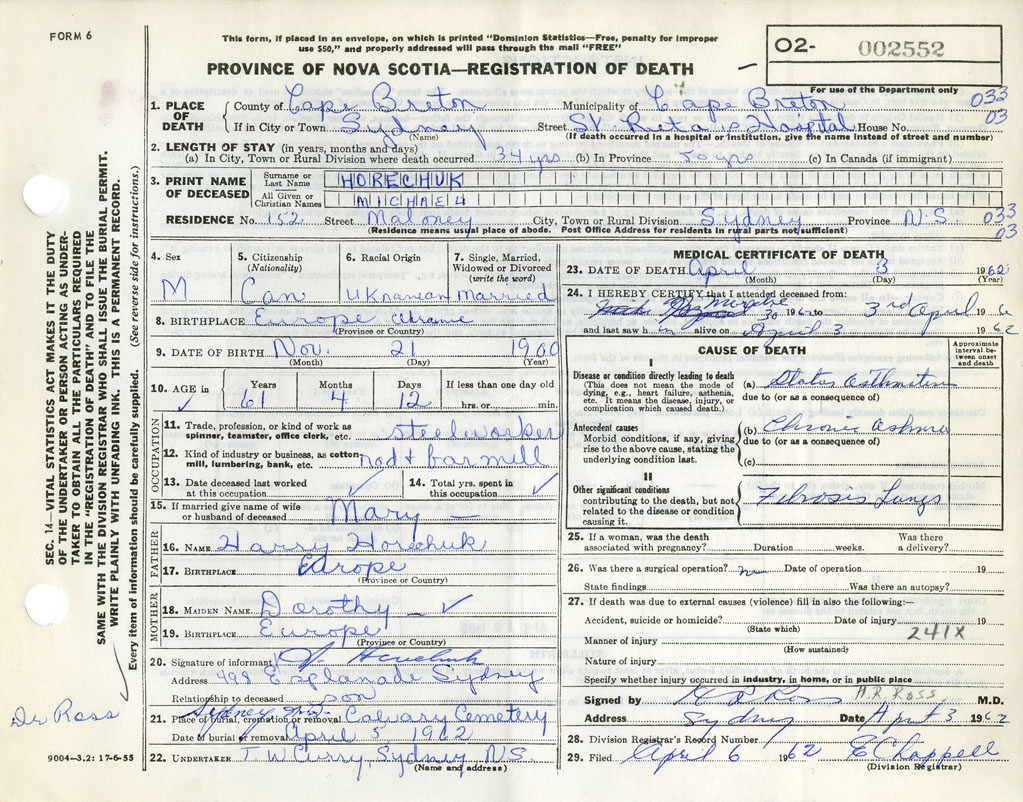 FORM 6
This form, if placed in an envelope, on which is printed "Dominion Statistics—Free, penalty for improper
use $50," and properly addressed will pass through the mail "FREE"
PROVINCE OF NOVA SCOTIA—REGISTRATION OF DEATH
02- 002552
For use of the Department only
033
03
1. PLACE OF DEATH
County of Cape Breton Municipality of Cape Breton
If in City or Town Sydney Street St. Rita's Hospital House No.
(Name) (If death occurred in a hospital or institution, give the name instead of street and number)
2. LENGTH OF STAY (in years, months and days)
(a) In City, Town or Rural Division where death occurred 34 yrs (b) In Province 50 yrs (c) In Canada (if immigrant)
3. PRINT NAME OF DECEASED
Surname or Last Name HORECHUK
All Given or Christian Names MICHAEL
RESIDENCE No. 152 Street Maloney City, Town or Rural Division Sydney Province N.S. 033
03
(Residence means usual place of abode. Post Office Address for residents in rural parts not sufficient)
4. Sex
M
5. Citizenship
(Nationality)
Can
6. Racial Origin
Ukranian
7. Single, Married,
Widowed or Divorced
(write the word)
Married
8. BIRTHPLACE Europe Ukraine
(Province or Country)
9. DATE OF BIRTH Nov. 21 1900
(Month) (Day) (Year)
10. AGE in Years Months Days If less than one day old
61 4 12 hrs. or min.
OCCUPATION
11. Trade, profession, or kind of work as
spinner, teamster, office clerk, etc. steelworker
12. Kind of industry or business, as cotton-
mill, lumbering, bank, etc. rod + bar mill
13. Date deceased last worked
at this occupation
14. Total yrs. spent in
this occupation
15. If married give name of wife
or husband of deceased Mary
FATHER
16. NAME Harry Horechuk
17. BIRTHPLACE Europe
(Province or Country)
MOTHER
18. MAIDEN NAME Dorothy
19. BIRTHPLACE Europe
(Province or Country)
20. Signature of informant
Address 498 Esplanade Sydney
Relationship to deceased son
Sydney N.S.
21. Place of burial, cremation or removal Calvary Cemetery
Date of burial or removal April 5 1962
22. UNDERTAKER T W Curry, Sydney N.S.
(Name and address)
MEDICAL CERTIFICATE OF DEATH
23. DATE OF DEATH April 3 1962
(Month) (Day) (Year)
24. I HEREBY CERTIFY that I attended deceased from:
March 30 1962 to 3rd April 196
and last saw h im alive on April 3 1962
CAUSE OF DEATH
Approximate
interval be-
tween onset
and death
I
Disease or condition directly leading to death
(This does not mean the mode of
dying, e.g., heart failure, asthenia,
etc. It means the disease, injury, or
complication which caused death.)
(a) Status Asthmaticus
due to (or as a consequence of)
Antecedent causes
Morbid conditions, if any, giving
rise to the above cause, stating the
underlying condition last.
(b) Chronic Asthma
due to (or as a consequence of)
(c)
II
Other significant conditions
contributing to the death, but not
related to the disease or condition
causing it.
Fibrosis Lungs
25. If a woman, was the death
associated with pregnancy? Duration weeks. Was there
a delivery?
26. Was there a surgical operation? no Date of operation 19
State findings Was there an autopsy?
27. If death was due to external causes (violence) fill in also the following:—
Accident, suicide or homicide? Date of injury 19
(State which)
241X
Manner of injury
(How sustained)
Nature of injury
Specify whether injury occurred in industry, in home, or in public place
A.R. ROSS
Signed by A R Ross M.D.
Address Sydney Date April 3 1962
28. Division Registrar's Record Number
29. Filed April 6 1962 E Chappell
(Division Registrar)
SEC. 14—VITAL STATISTICS ACT MAKES IT THE DUTY
OF THE UNDERTAKER OR PERSON ACTING AS UNDER-
TAKER TO OBTAIN ALL THE PARTICULARS REQUIRED
IN THE "REGISTRATION OF DEATH" AND TO FILE THE
SAME WITH THE DIVISION REGISTRAR WHO SHALL ISSUE THE BURIAL PERMIT.
WRITE PLAINLY WITH UNFADING INK. THIS IS A PERMANENT RECORD.
Every item of information should be carefully supplied. (See reverse side for instructions.)
Dr Ross
9004—3.2: 17-6-55